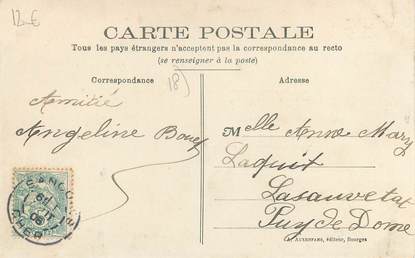 12-€
CARTE POSTALE
Tous les pays étrangers n'acceptent pas la correspondance au recto
(se renseigner à la poste)
18)
Correspondance
Adresse
Amitié
Angeline
Melle Anne Mary
Laquit
Lasauvetat
Puy de Dome
CHER
édit⁠eur, Bourges